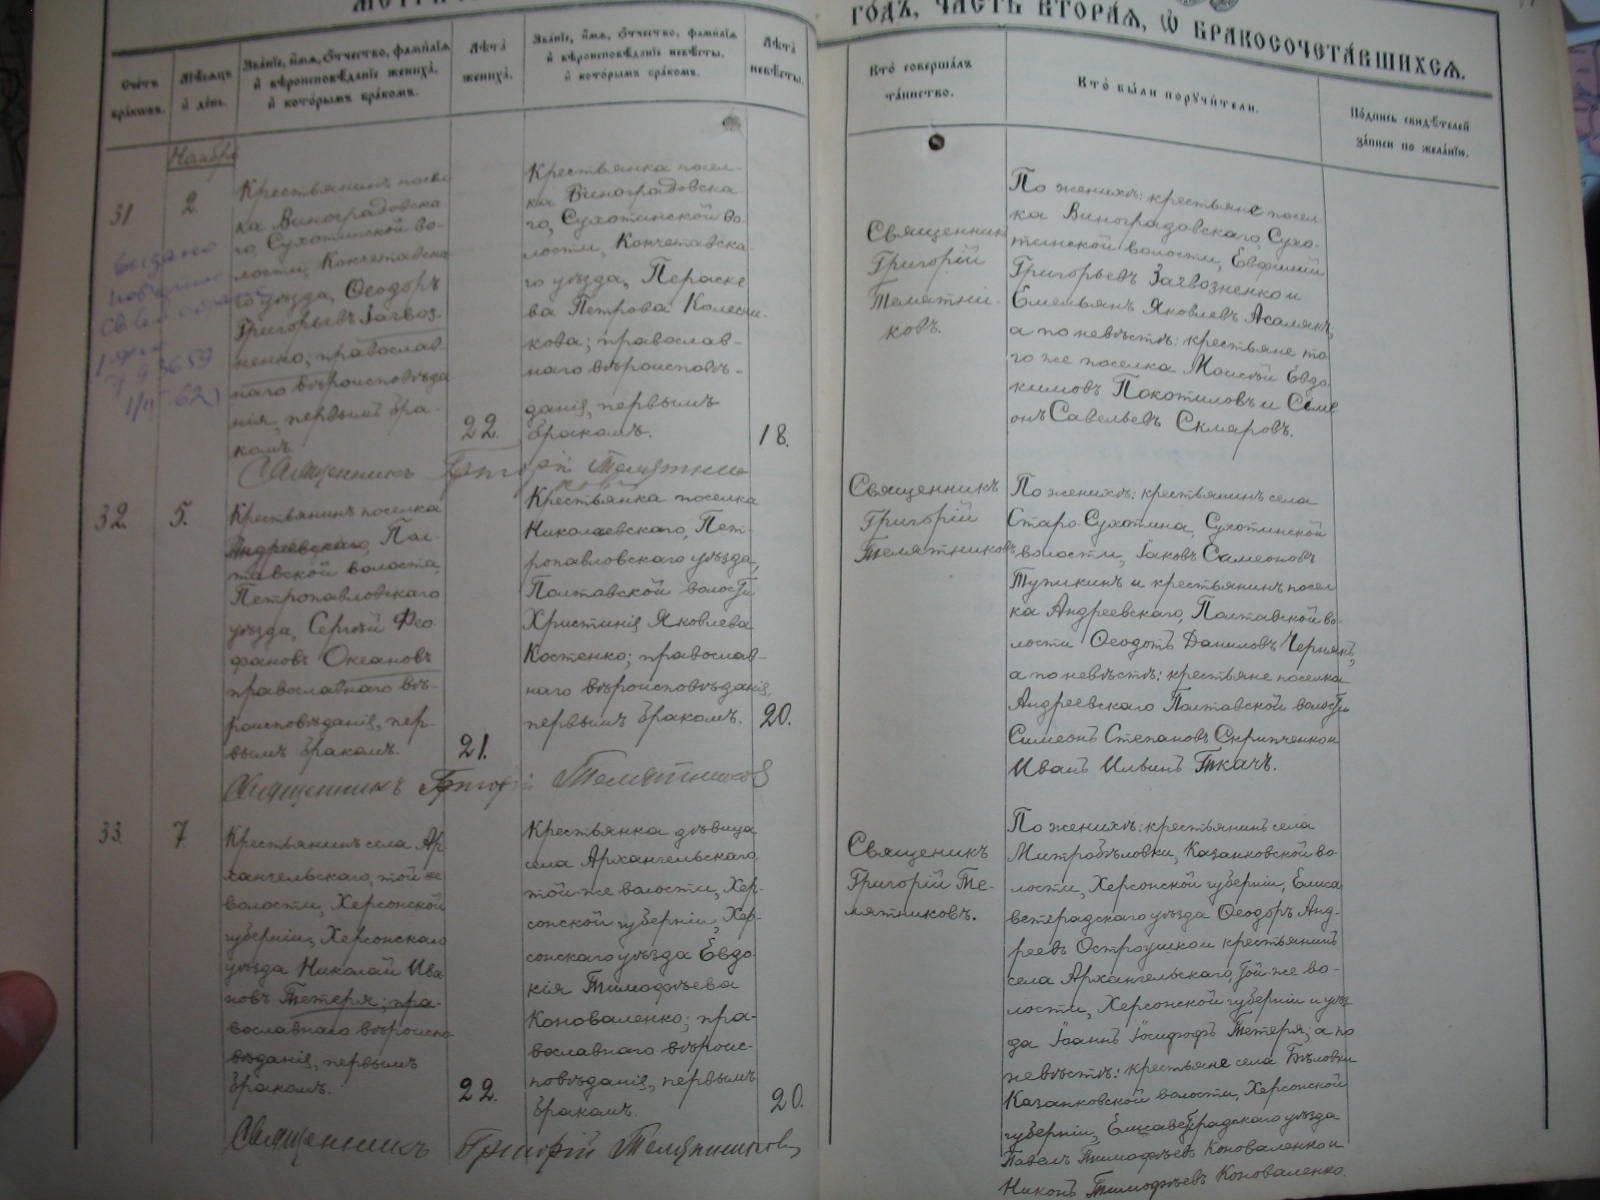 ГО́ДЪ, ЧА́СТЬ ВТОРА́Я, Ѡ БРАКОСОЧЕТА́ВШИХСЯ.
Сче́тъ
бра́ковъ.
Мѣ́сяцъ
и де́нь.
Зва́нїе, и́мя, о́тчество, фами́лїя
и вѣроисповѣ́данїе жениха́,
и кото́рымъ бра́комъ.
Лѣ́та
жениха́.
Зва́нїе, и́мя, о́тчество, фами́лїя
и вѣроисповѣ́данїе невѣ́сты,
и кото́рымъ бра́комъ.
Лѣ́та
невѣ́сты.
Кто́ соверша́лъ
та́инство.
Кто́ бы́ли поручи́тели.
По́дпись свидѣ́телей
за́писи по жела́нїю.
Ноября
31
2.
Крестьянинъ посел
ка Виноградовска
го, Сухотинской во-
лости, Кокчетавска
го уѣзда, Ѳеодоръ
Григорьевъ Загвоз
ненко, православ
наго вѣроисповѣда
нія, первымъ бра-
комъ.
22.
Крестьянка посел-
ка Виноградовска
го, Сухотинской во-
лости, Кокчетавска-
го уѣзда, Параске
ва Петрова Колесни-
кова; православ-
наго вѣроисповѣ-
данія, первымъ
бракомъ.
18.
Священникъ
Григорій
Телятни-
ковъ.
По женихѣ: крестьяне посел
ка Виноградовскаго, Сухо-
тинской волости, Евфимій
Григорьевъ Загвозненко и
Емельянъ Яковлевъ
а по невѣстѣ: крестьяне то
го же поселка Моисей Евдо
кимовъ Покотиловъ и Симе
онъ Савельевъ Скляровъ.
Священникъ Григорій Телятни
ковъ
32.
5.
Крестьянинъ поселка
Андреевскаго, Пол-
тавской волости,
Петропавловскаго
уѣзда, Сергѣй Фео
фановъ Океановъ
православнаго вѣ-
роисповѣданія, пер-
вымъ бракомъ.
21.
Крестьянка поселка
Николаевскаго, Пет-
ропавловскаго уѣзда,
Полтавской волости
Христинія Яковлева
Костенко; православ-
наго вѣроисповѣданія,
первымъ бракомъ.
20.
Священникъ
Григорій
Телятниковъ
По женихѣ: крестьянинъ села
Старо-Сухотина, Сухотинской
волости, Іаковъ Симеоновъ
Тупикинъ и крестьянинъ посел
ка Андреевскаго, Полтавской во-
лости Ѳеодотъ Даниловъ Чернякъ,
а по невѣстѣ: крестьяне поселка
Андреевскаго Полтавской волости
Симеонъ Степановъ Скрипченко и
Иванъ Ильинъ Ткачъ.
Священникъ Григорій Телятниковъ
33.
7
Крестьянинъ села Ар-
хангельскаго, той-же
волости, Херсонской
губерніи, Херсонскаго
уѣзда Николай Ива
новъ Тетеря; пра-
вославнаго вѣроиспо-
вѣданія, первымъ
бракомъ.
22.
Крестьянка дѣвица
села Архангельскаго,
той-же волости, Хер-
сонской губерніи, Хер-
сонскаго уѣзда Евдо
кія Тимофѣева
Коноваленко; пра-
вославнаго вѣроис-
повѣданія, первымъ
бракомъ.
20.
Священикъ
Григорій Те-
лятниковъ.
По женихѣ: крестьянинъ села
Митробѣловки, Казанковской во-
лости, Херсонской губерніи, Елиса
ветградскаго уѣзда Ѳеодоръ Анд-
реевъ Остроушко и крестьянинъ
села Архангельскаго, той-же во-
лости, Херсонской губерніи и уѣз
да Іоаннъ Іосифовъ Тетеря; а по
невѣстѣ: крестьяне села Бѣловки
Казанковской волости, Херсонской
губерніи, Елисаветградскаго уѣзда
Павелъ Тимофѣевъ Коноваленко и
Никонъ Тимофѣевъ Коноваленко.
Священникъ Григорій Телятниковъ